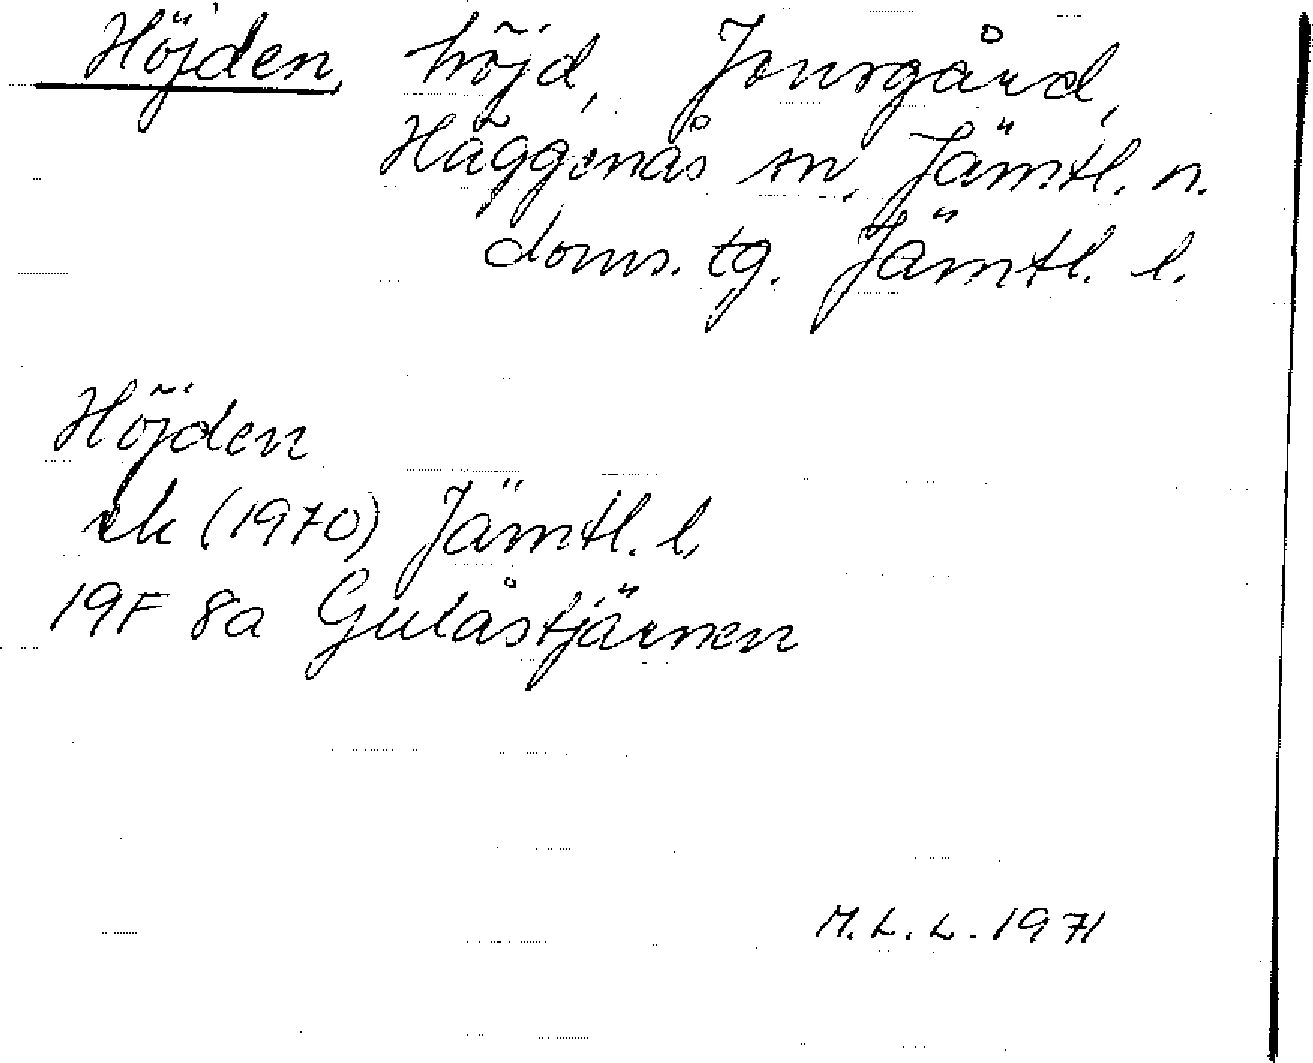 Höjden, höjd, Jonsgård,
Häggenås sn, Jämtl. n.
doms. tg. Jämtl. l.
Höjden
ek (1970) Jämtl. l.
19F 8a Gulåstjärnen
M.L.L. 1971